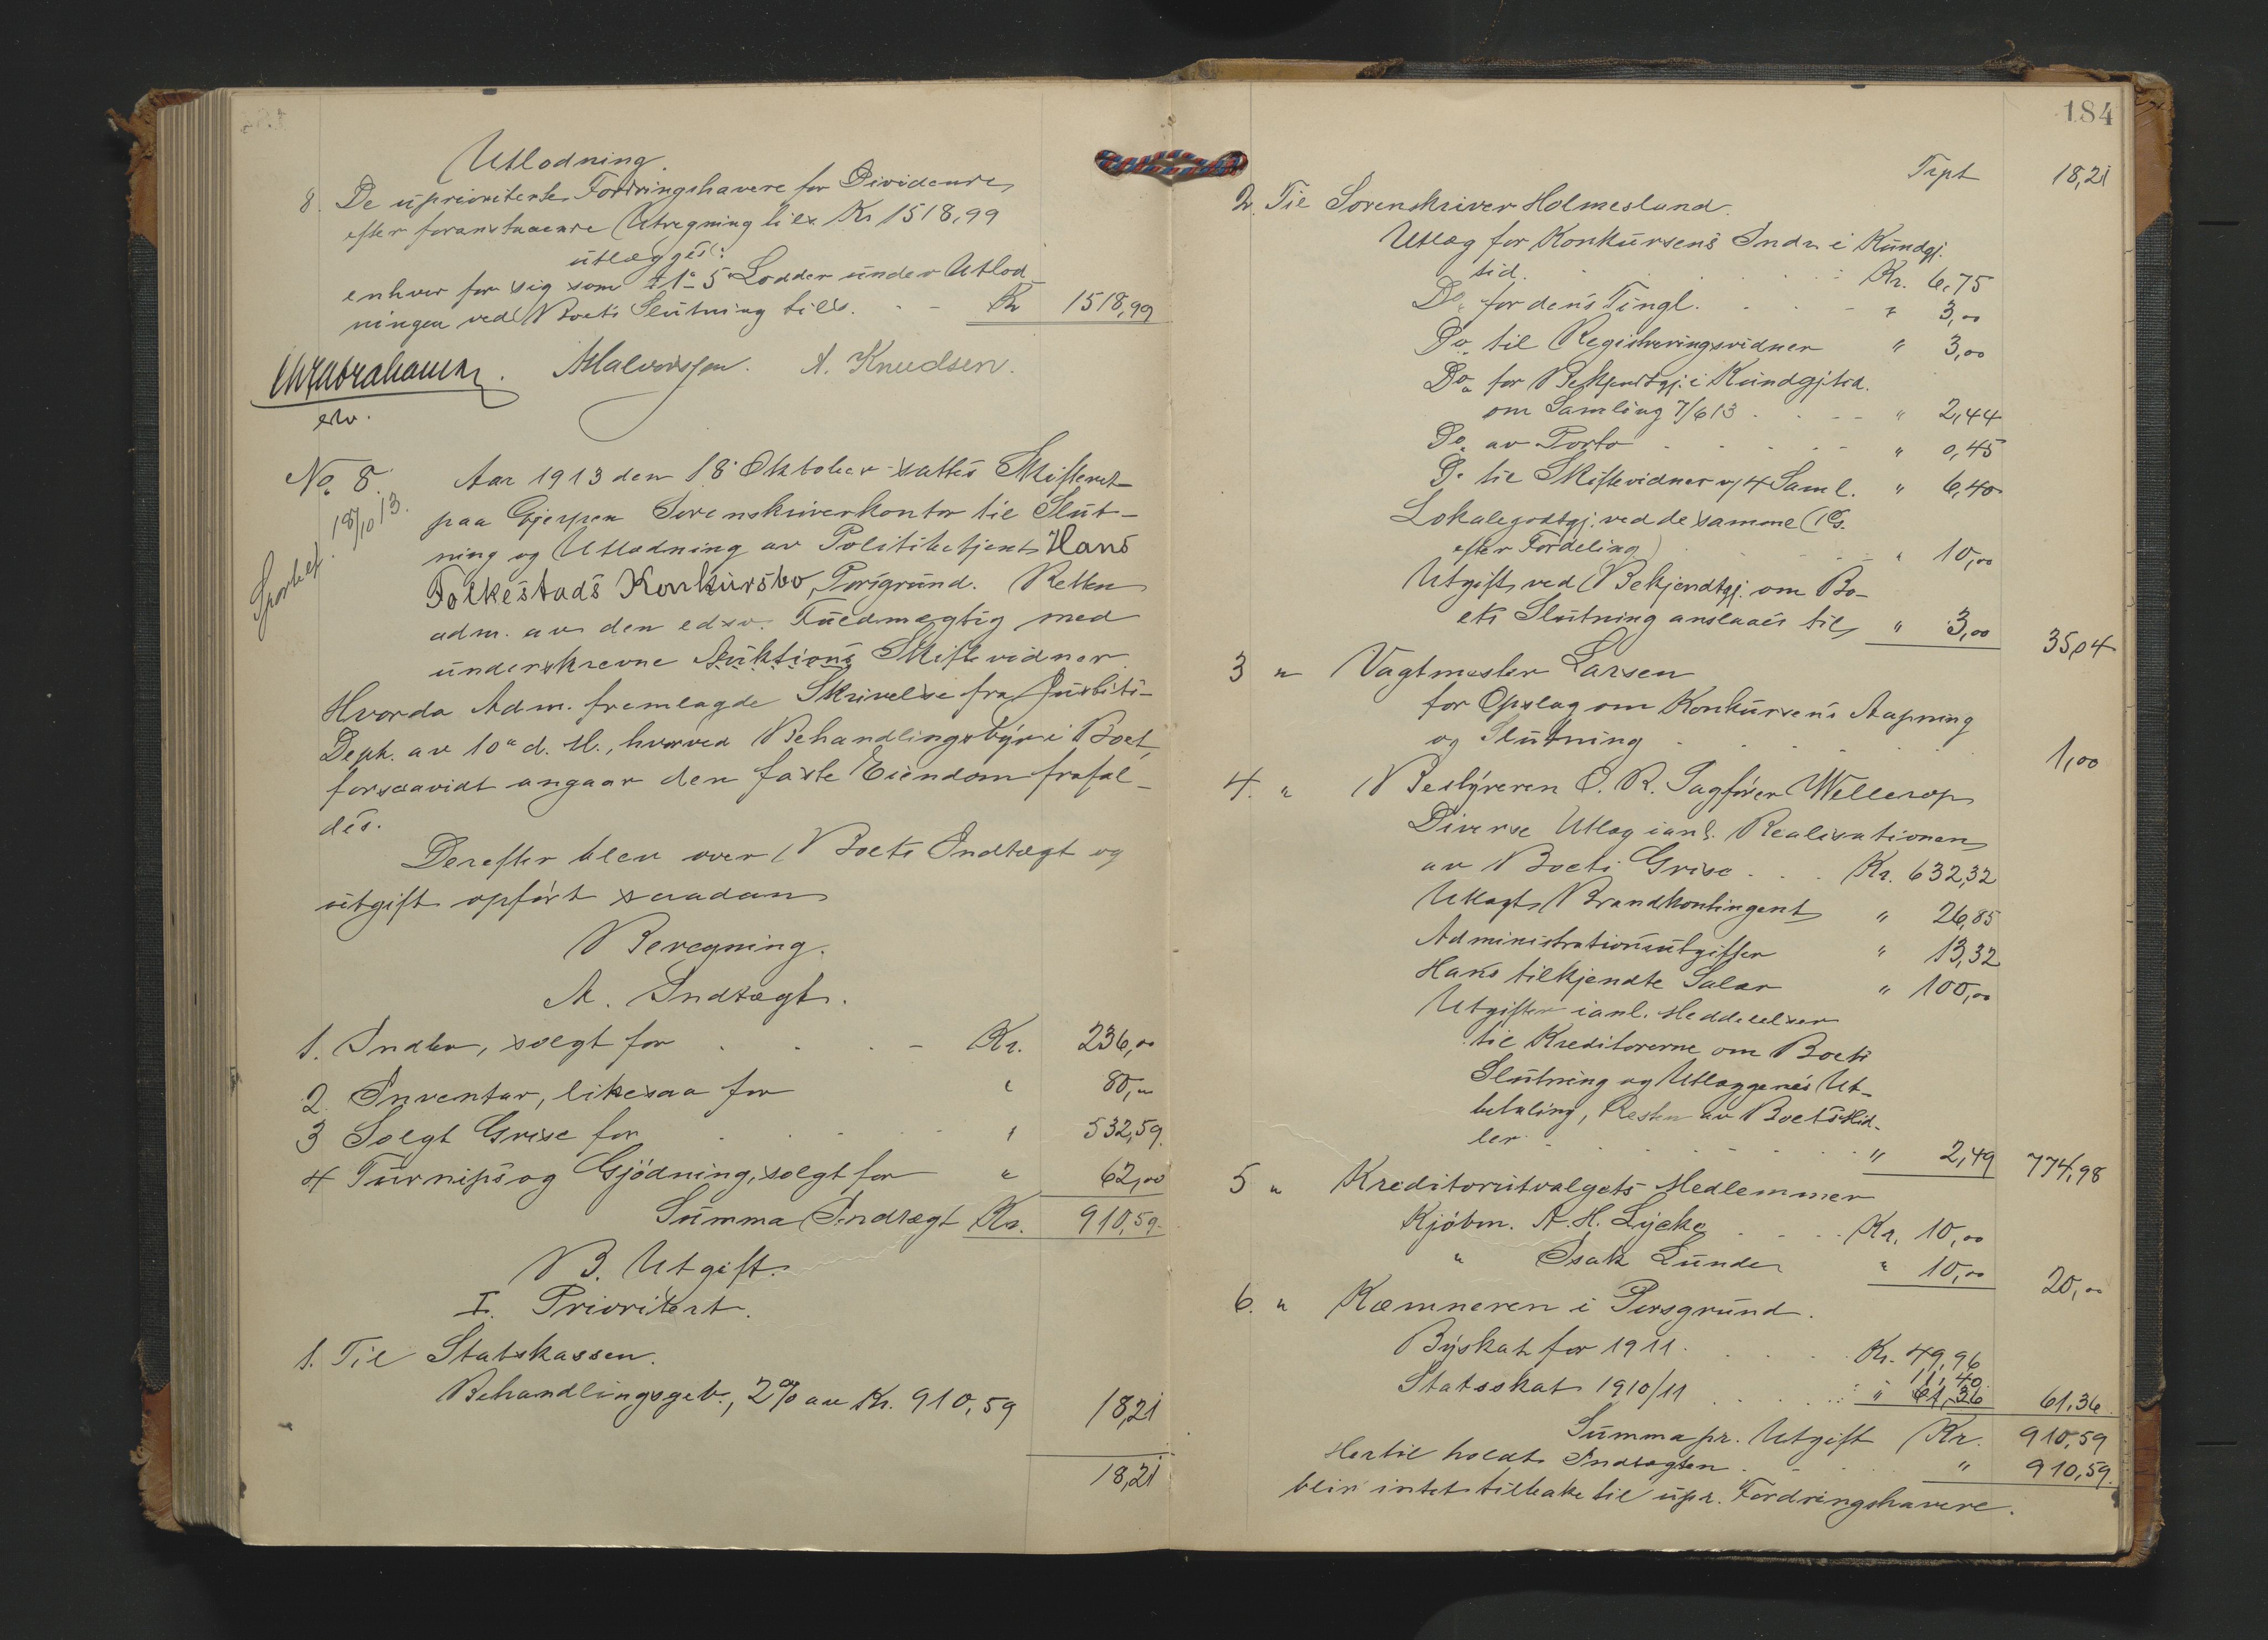 Utlodning.
8. De uprioriterte Fordringshavere for Dividende
efter foranstaaende Utregning tils. Kr 1518,99
utlægges:
enhver for sig som 1-5 Lodder under Utlod-
ningen ved Boets Slutning tils. - - Kr 1518,99
A. Knudsen.
No. 8.
18/10 13.
Aar 1913 den 18 Oktober sattes Skifteret
paa Gjerpen Sorenskriverkontor til Slut-
ning og Utlodning av Politibetjent Hans
Folkestads Konkursbo, Porsgrund. Retten
adm. av den edsv. Fuldmægtig med
underskrevne Auktions Skiftevidner.
Hvorda Adm. fremlagde Skrivelse fra Justits-
Dept. av 10de d. M., hvorved Behandlingsgebyr i Boet,
forsaavidt angaar den faste Eiendom frafal-
des.
Derefter blev over Boets Indtægt og
utgift opført saadan
Beregning.
A. Indtægt.
1. Indbo, solgt for . . . - Kr. 236,00
2. Inventar, likesaa for " 80,00
3 Solgt Grise for . . . . " 532,59.
4 Turnips og Gjødning, solgt for " 62,00
Summa Indtægt Kr. 910,59.
B. Utgift.
I. Prioritert.
1. Til Statskassen.
Behandlingsgeb., 2% av Kr. 910,59 18,21
18,21
184
Trpt 18,21
2. Til Sorenskriver Holmesland.
Utlæg for Konkursens Indr. i Kundgj.
tid. . . . Kr. 6,75
Do. for dens Tingl. . . . " 3,00
Do. til Registreringsvidner " 3,00
Do. for Bekjendtgj. i Kundgjtid.
om Samling 7/6 13 . . - - " 2,44
Do. av Porto . . . . " 0,45
Do til Skiftevidner v/ 4 Saml. " 6,40
Lokalegodtgj. ved de samme
efter Fordeling) . . . " 10,00
Utgift ved Bekjendtgj. om Bo-
ets Slutning anslaaes til " 3,00 35,04
3 " Vagtmester Larsen
for Opslag om Konkursens Aapning
og Slutning . . . . 1,00
4. " Bestyreren O. R. Sagfører Wellerop
Diverse Utlæg i anl. Realisationen
av Boets Grise . . . Kr. 632,32
Utlagt Brandkontingent " 26,85
Administrationsutgifter " 13,32
Hans tilkjendte Salær " 100,00
Utgifter i anl. Meddelelser
til Kreditorerne om Boets
Slutning og Utlæggenes Ut-
betaling, Resten av Boets Mid-
ler . . . . " 2,49 774,98
5 " Kreditorutvalgets Medlemmer
Kjøbm. A. H. Lycke . . . Kr. 10,00
" Isak Lunde " 10,00 20,00
6. " Kæmneren i Porsgrund.
Byskat for 1911 . . . . Kr. 49,96
11,40
Statsskat 1910/11 . . . . " 61,36 61,36
Summa pr. Utgift Kr. 910,59
Hertil holdt Indtægten . . . " 910,59.
blir intet tilbake til upr. Fordringshavere.